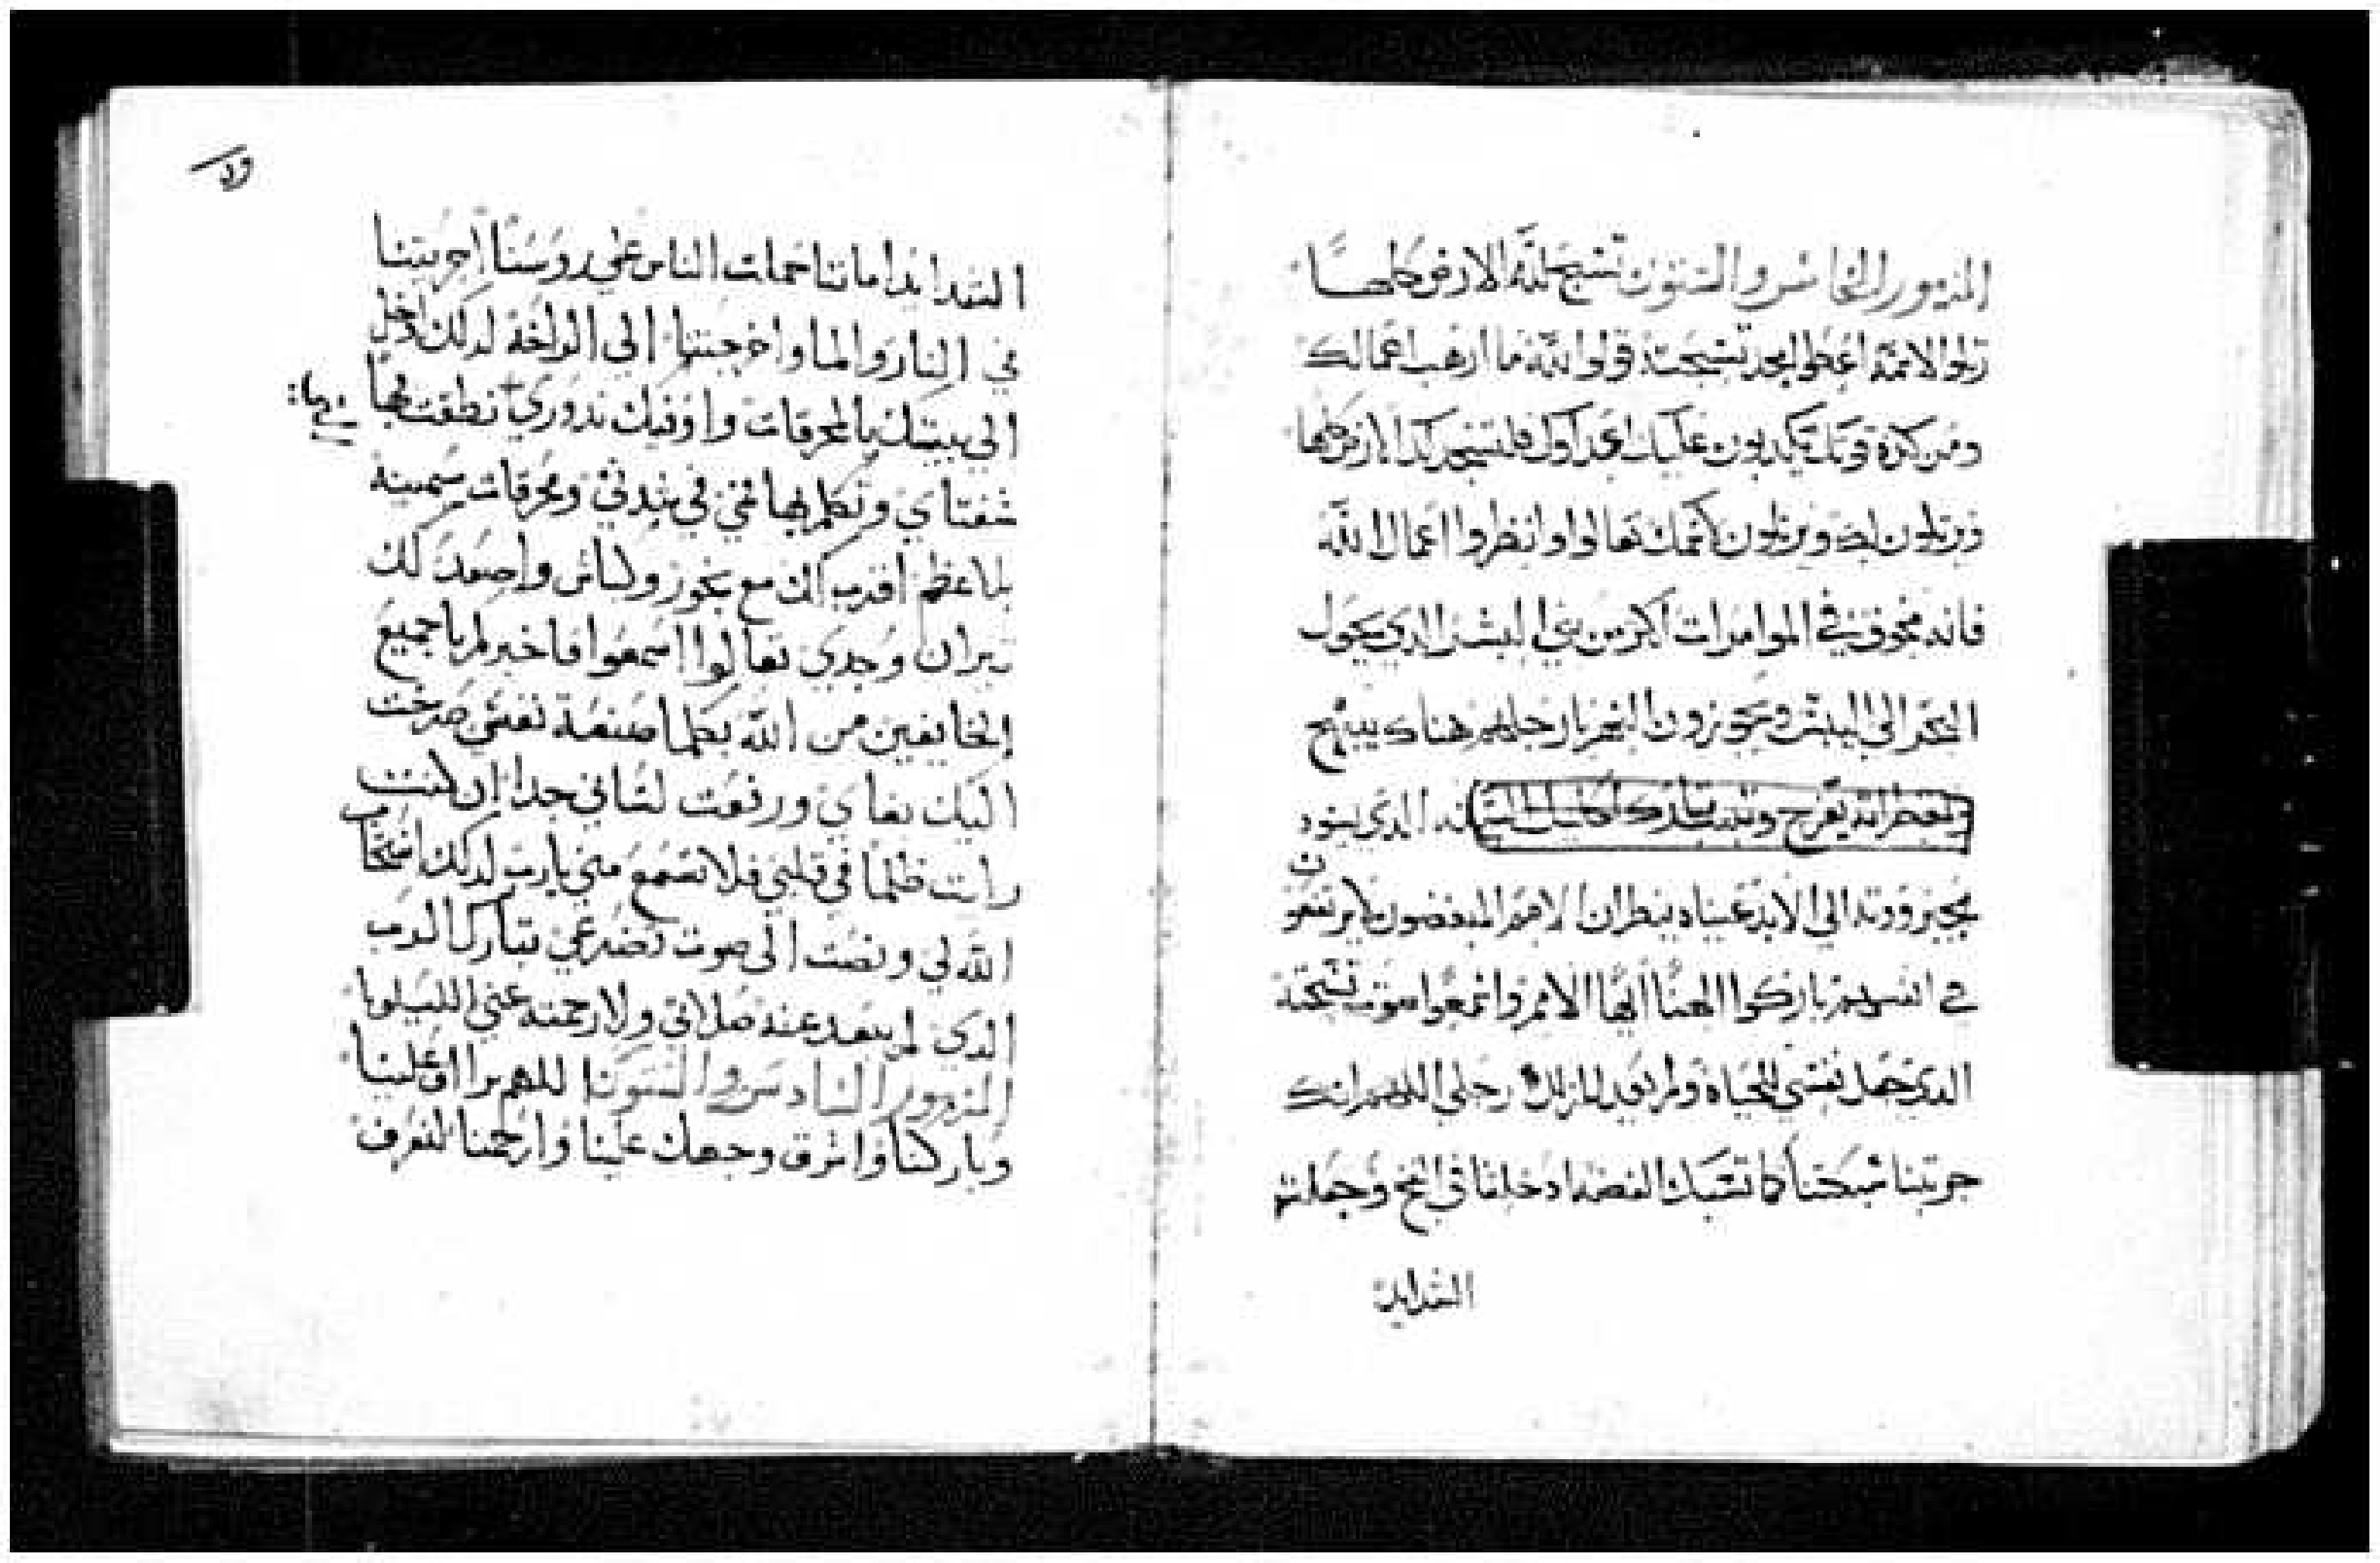 المزمور الخامس والستون تسبح لله الارض كلها
رتلوا لاسمه اعطوا مجد تسبحته قولوا لله ما ارهب اعمالك
ومن كثرة قوتك يكذبون عليك اعداوك فلتسجد لك الارض كلها
ويرتلون لك ويرتلون لاسمك تعالوا وانظروا اعمال الله
فانه مخوف في الموامرات اكثر من بني البشر الذي يحول
البحر الي اليبس ويجوزون النهر بارجلهم هناك يبتهج
الذي يسود
بجبروته الي الابد عيناه ينظران الامم المبغضون لا يرتفعون
في انفسهم باركوا الهنا ايها الامم واسمعوا صوت تسبحته
الذي جعل نفسي للحياة ولم يعد للزلل رجلي اللهم انك
جربتنا سبكتنا كما تسبك الفضة ادخلتنا في الفخ وجعلت
الشدايد
ولا
الشدايد امامنا حملت الناس علي روسنا اجزيتنا
في النار والما واخرجتنا الي الراحة لذلك ادخل
الي بيتك بالمحرقات واوفيك نذوري نطقت بها
شفتاي وتكلم بها فمي في شدتي ومحرقات سمينة
بلا عظم اقرب لك مع بخور وكباش واصعد لك
ثيران وجدي تعالوا اسمعوا فاخبركم يا جميع
الخايفين من الله بكلما صنعه نفسي صرخت
اليك بفاي ورفعت لساني جدا ان كنت
رايت ظلما في قلبي فلا تسمع مني يارب لذلك استجاب
الله لي ونصت الي صوت تضرعي تبارك الرب
الذي لم يبعد عنه صلاتي ولا رحمته عني الليلويا
المزمور السادس والستون اللهم تراف علينا
وباركنا واشرق وجهك علينا وارحمنا لنعرف